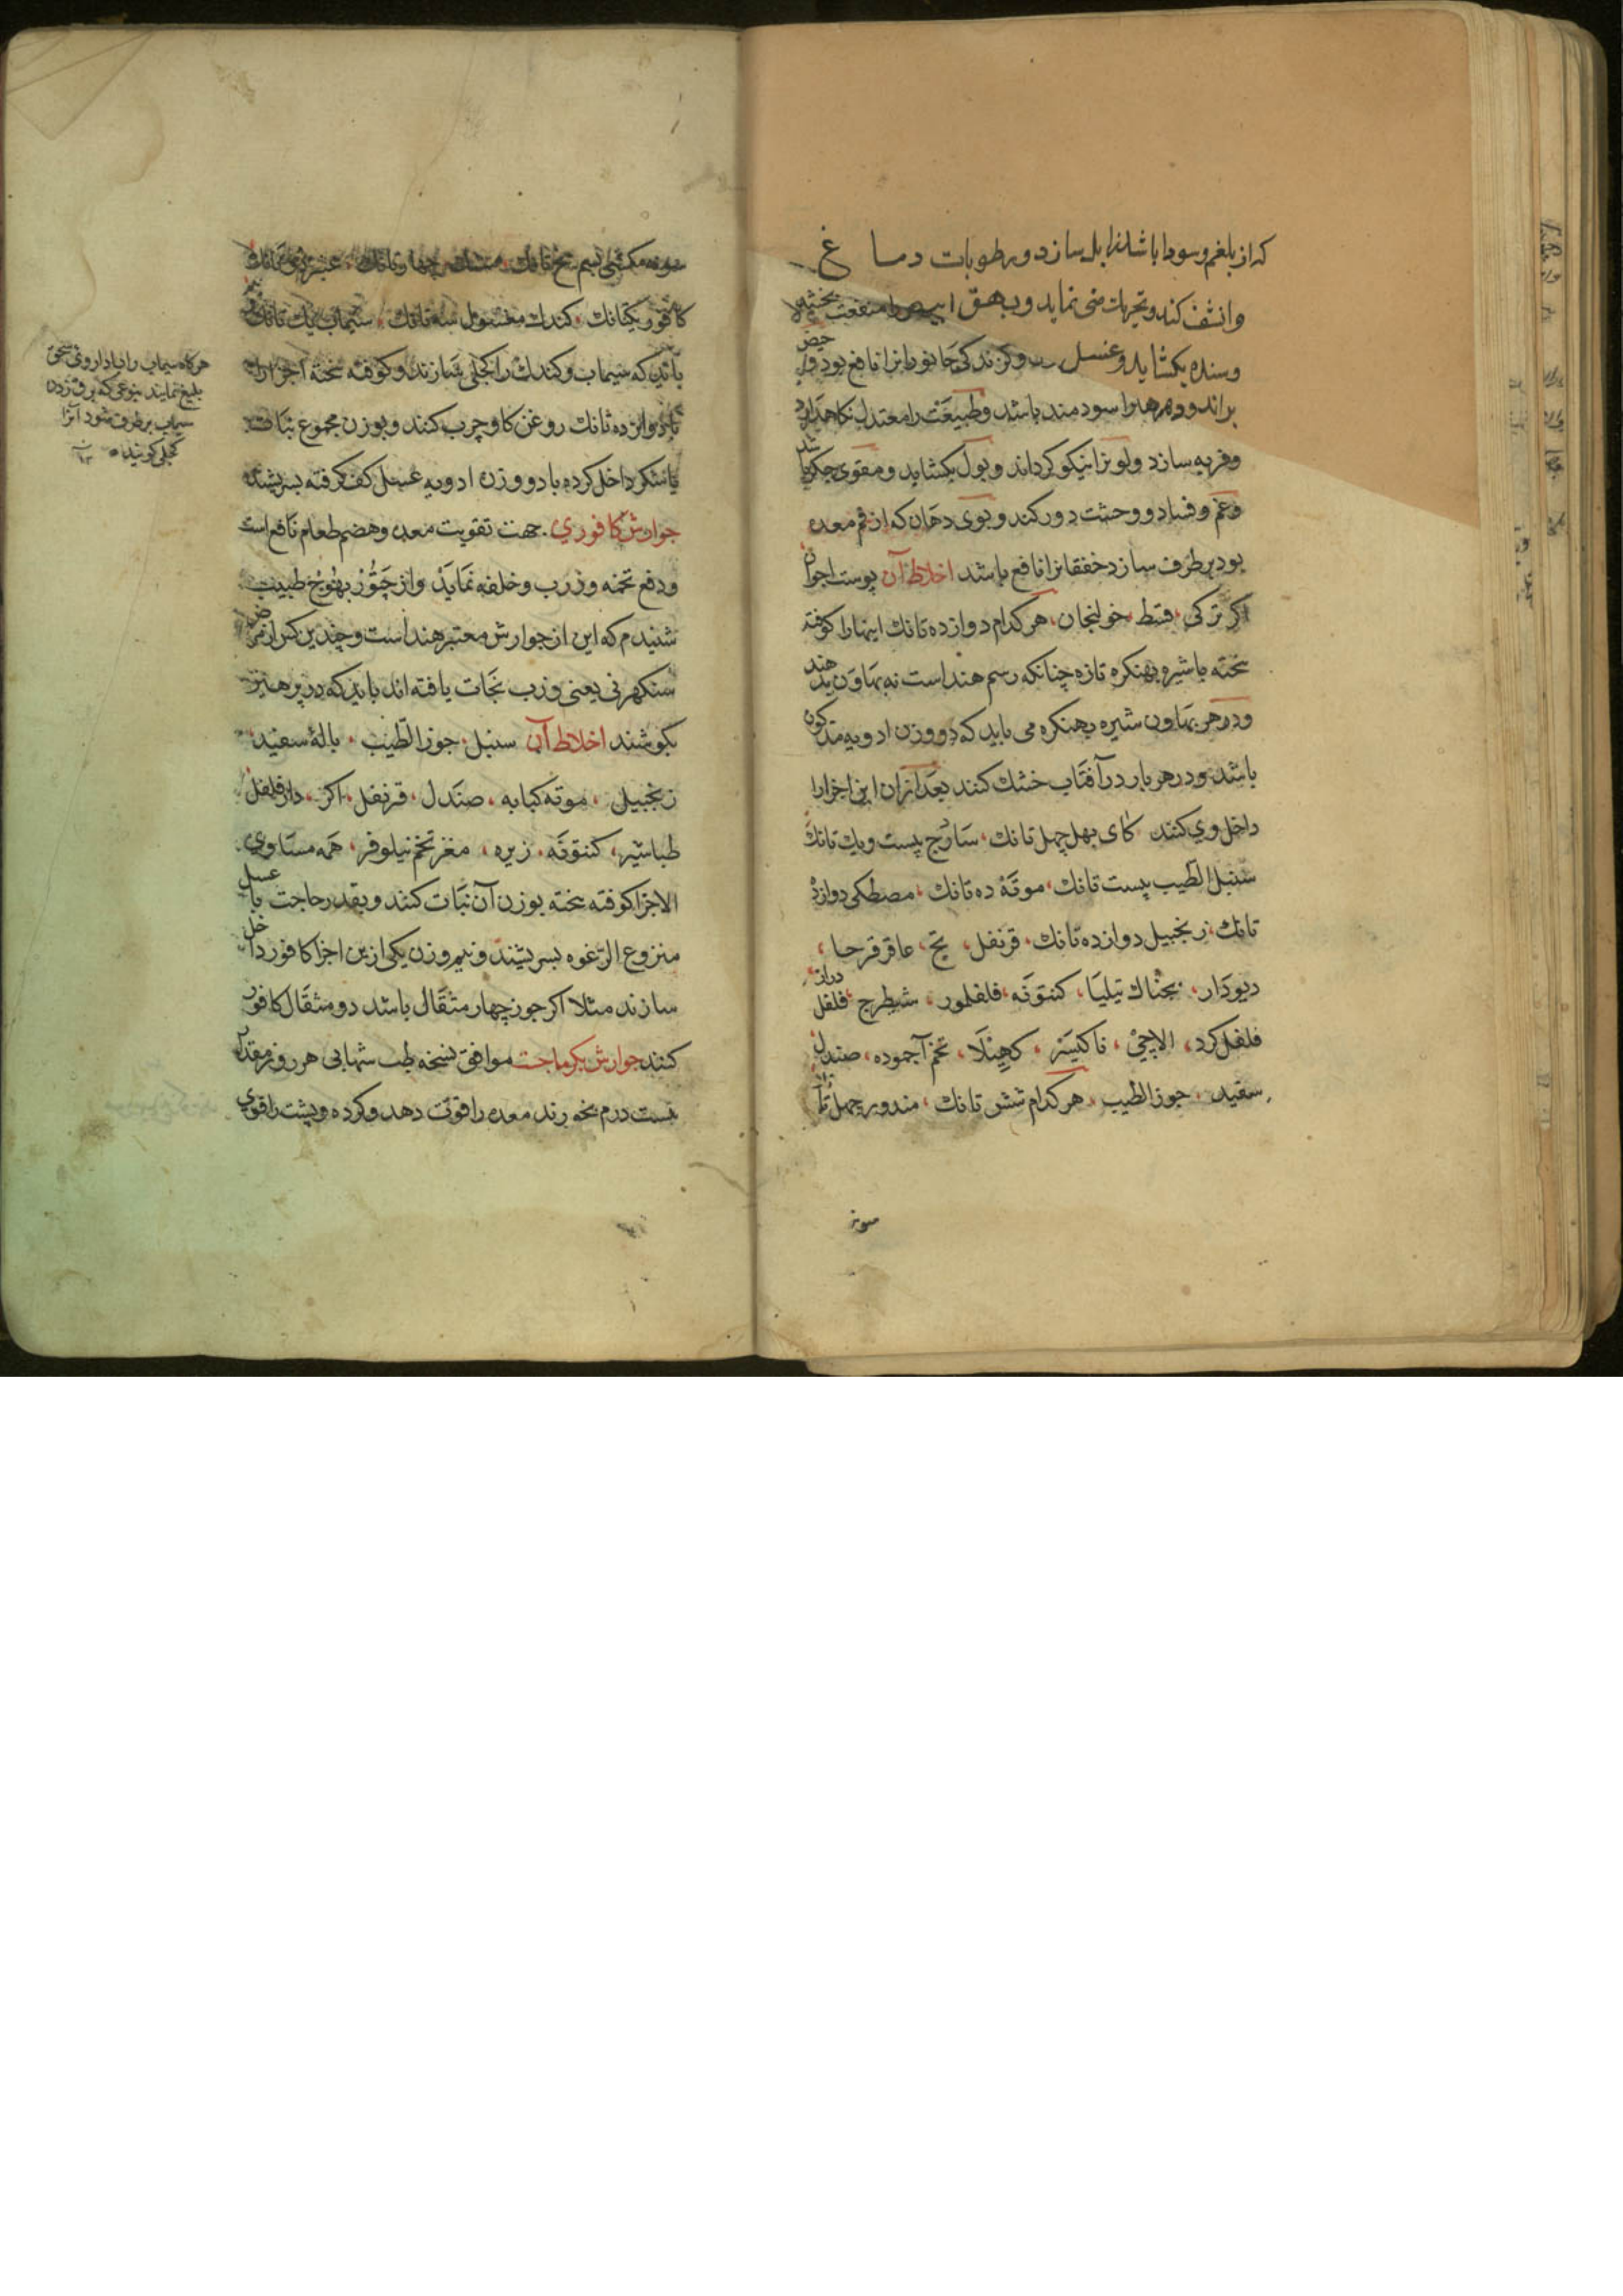 که از بلغم و سودا باشد زایل سازد و رطوبات دماغ
وانشف کند و تجهات منی نماید و بهق ابیض را منفعت بخشد
وسده بکشاید و عسل و کزندکی جانورانرا نافع بود و حیض
براند و زهرهرا سودمند باشد و طبیعت را معتدل نکاهدارد
و فربه سازد و لونرا نیکو کرداند و بول بکشاید و مقوی جکر باشد
و غم و فساد و وحشت دور کند و بوی دهان که از فم معده
بود برطرف سازد خفقانرا نافع باشد اخلاط آن پوست اجوان
اکر ترکی، قسط، خولنجان، هرکدام دوازده تانك اینها را کوفته
بخته با شیره بهنکره تازه چنانکه رسم هند است نه بهاون بدهند
و در هر بهاون شیره بهنکره می باید که دو وزن ادویه مذکون
باشد و در هر بار در آفتاب خشك کنند بعد ازان این اجزا را
داخل وی کنند کای بهل چهل تانك، سازج بیست و یك تانك
سنبل الطیب بیست تانك، موته ده تانك، مصطکی دوازده
تانك، زنجبیل دوازده تانك، قرنفل، بج، عاقرقرحا،
دیودار، بجناك تیلیا، کنتونه، فلفلور، شیطرج، فلفل دراز
فلفل کرد، الاچی، ناکیسر، کهینلا، تخم آجموده، صندل
سفید، جوز الطیب، هرکدام شش تانك، مندور چهل تانك
سونز
کافور یکتانك، کندك مغسول سه تانك، سیماب یك تانك
باید که سیماب و کندك را کجلی سازند و کوفته بخته اجزا را
با دوازده تانك روغن کاو چرب کنند و بوزن مجموع نبات
یا شکر داخل کرده با دو وزن ادویه عسل کف کرفته بسریشند
جوارش کافوری. جهت تقویت معده و هضم طعام نافع است
و دفع تخمه و زرب و خلفه نماید و از چتور بهوج طبیب
شنیدم که این از جوارش معتبر هند است و چندین کس از مرض
سنکهرنی یعنی وزب نجات یافته اند باید که در پرهیز
بکوشند اخلاط آن سنبل، جوز الطیب، باله سفید،
زنجبیل، موته کبابه، صندل، قرنفل، اکر، دارفلفل
طباشیر، کنتونه، زیره، مغز تخم نیلوفر، همه مساوی
الاجزا کوفته بخته بوزن آن نبات کنند و بقدر حاجت با عسل
منزوع الرغوه بسریشند و نیم وزن یکی ازین اجزا کافور داخل
سازند مثلا اکر جوز چهار مثقال باشد دو مثقال کافور
کنند جوارش بکرماجت موافق نسخه طب شهابی هر روز مقدار
بیست درم بخورند معده را قوت دهد و کرده و پشت را قوی
هرکاه سیماب را با داروئی سحق
بلیغ نمایند بنوعی که برق زدن
سیماب برطرف شود آنرا
کجلی کویند